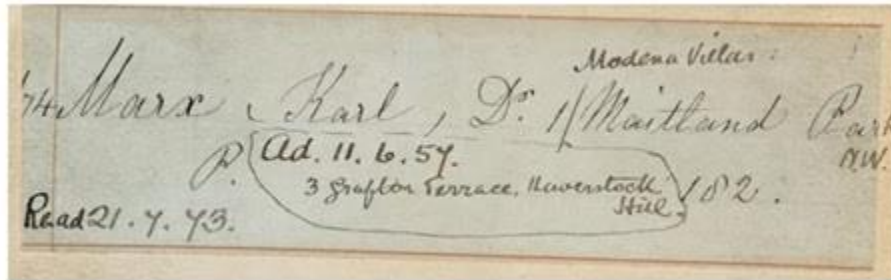 Modena Villas
74 Marx, Karl, Dr. 1/Maitland Park
N.W.
P. Ad. 11.6.57.
3 Grafton Terrace, Haverstock
Hill. 182.
Read 21.7.73.